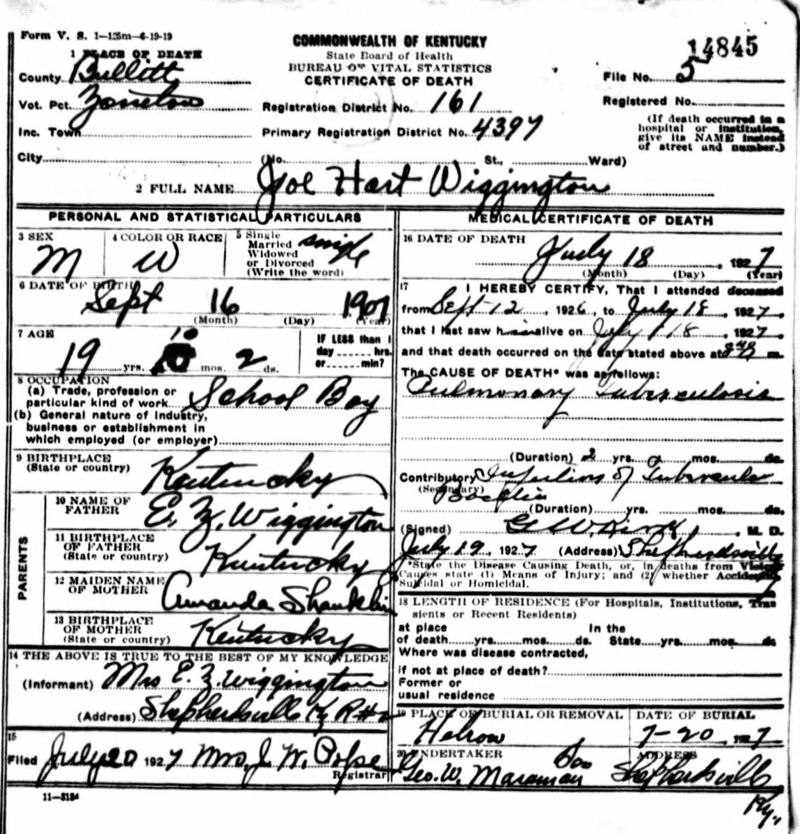 Form V. S. 1—125m—6-19-19
COMMONWEALTH OF KENTUCKY
State Board of Health
BUREAU OF VITAL STATISTICS
CERTIFICATE OF DEATH
14845
1 PLACE OF DEATH
County Bullitt
File No. 5
Vot. Pct. Zoneton
Registration District No. 161
Registered No.
Inc. Town
Primary Registration District No. 4397
(If death occurred in a hospital or institution, give its NAME instead of street and number.)
City (No. St., Ward)
2 FULL NAME Joe Hart Wiggington
PERSONAL AND STATISTICAL PARTICULARS
3 SEX M
4 COLOR OR RACE W
5 Single Married Widowed or Divorced (Write the word) single
6 DATE OF BIRTH Sept 16 1907
(Month) (Day) (Year)
7 AGE
19 yrs. 10 mos. 2 ds.
IF LESS than 1 day hrs. or min?
8 OCCUPATION
(a) Trade, profession or particular kind of work School Boy
(b) General nature of Industry, business or establishment in which employed (or employer)
9 BIRTHPLACE (State or country) Kentucky
PARENTS
10 NAME OF FATHER E. Z. Wiggington
11 BIRTHPLACE OF FATHER (State or country) Kentucky
12 MAIDEN NAME OF MOTHER Amanda Shanklin
13 BIRTHPLACE OF MOTHER (State or country) Kentucky
14 THE ABOVE IS TRUE TO THE BEST OF MY KNOWLEDGE
(Informant) Mrs E. Z. Wiggington
(Address) Shepherdsville Ky R#2
15
Filed July 20 1927 Mrs. J. W. Pope
Registrar
11—3184
MEDICAL CERTIFICATE OF DEATH
16 DATE OF DEATH
July 18, 1927
(Month) (Day) (Year)
17 I HEREBY CERTIFY, That I attended deceased
from Sept 12, 1926, to July 18, 1927
that I last saw him alive on July 18, 1927
and that death occurred on the date stated above at m.
The CAUSE OF DEATH* was as follows:
Pulmonary Tuberculosis
(Duration) 2 yrs. mos. ds.
Contributory of Tubercule
(Secondary)
(Duration) yrs. mos. ds.
(Signed) M. D.
July 19, 1927 (Address) Shepherdsville
*State the Disease Causing Death, or, in deaths from Violent
Causes state (1) Means of Injury; and (2) whether Accidental,
Suicidal or Homicidal.
18 LENGTH OF RESIDENCE (For Hospitals, Institutions, Transients or Recent Residents)
at place of death yrs. mos. ds. In the State yrs. mos. ds
Where was disease contracted,
if not at place of death?
Former or usual residence
19 PLACE OF BURIAL OR REMOVAL
Hebron
DATE OF BURIAL
7-20 1927
20 UNDERTAKER
Geo. W. Maraman Son
ADDRESS
Shepherdsville
Ky.